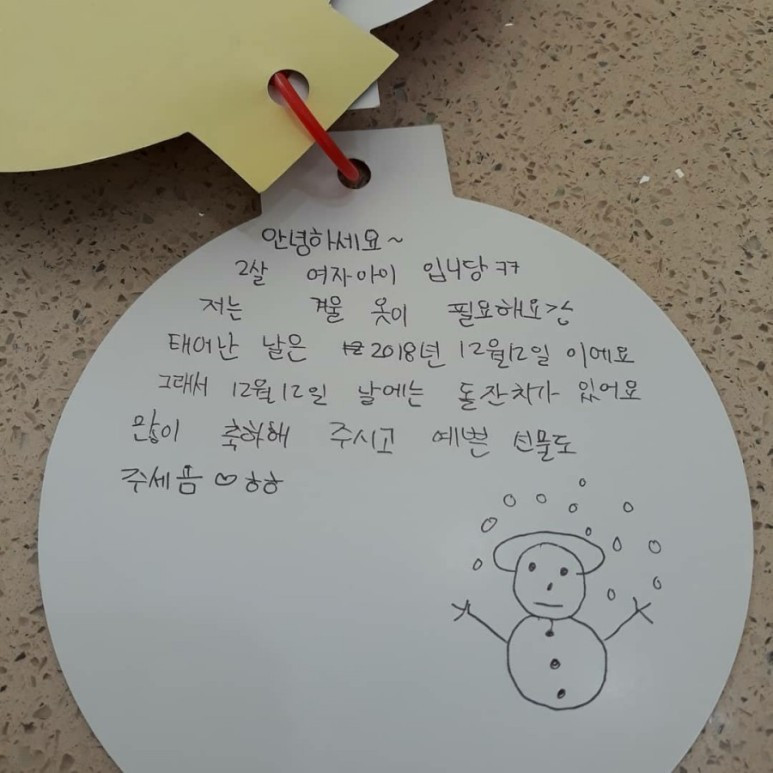 안녕하세요~
2살 여자아이 입니당 ㅋㅋ
저는 겨울 옷이 필요해요
태어난 날은 2018년 12월12일 이에요
그래서 12월12일 날에는 돌잔치가 있어요
많이 축하해 주시고 예쁜 선물도
주세욤 ♡ㅎㅎ